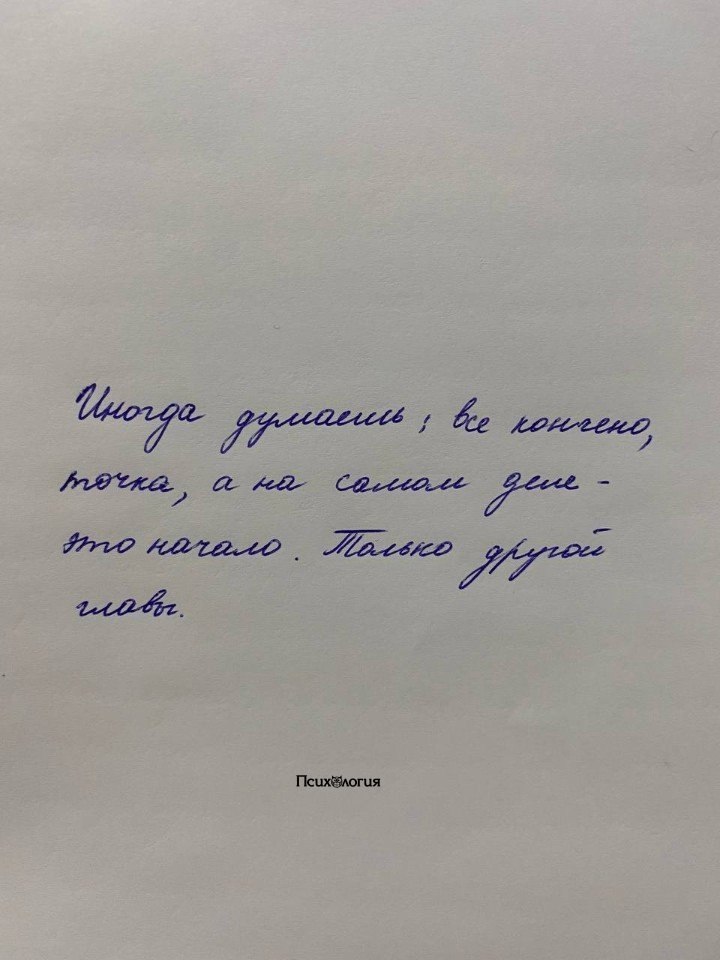 Иногда думаешь: все кончено,
точка, а на самом деле -
это начало. Только другой
главы.
Психология